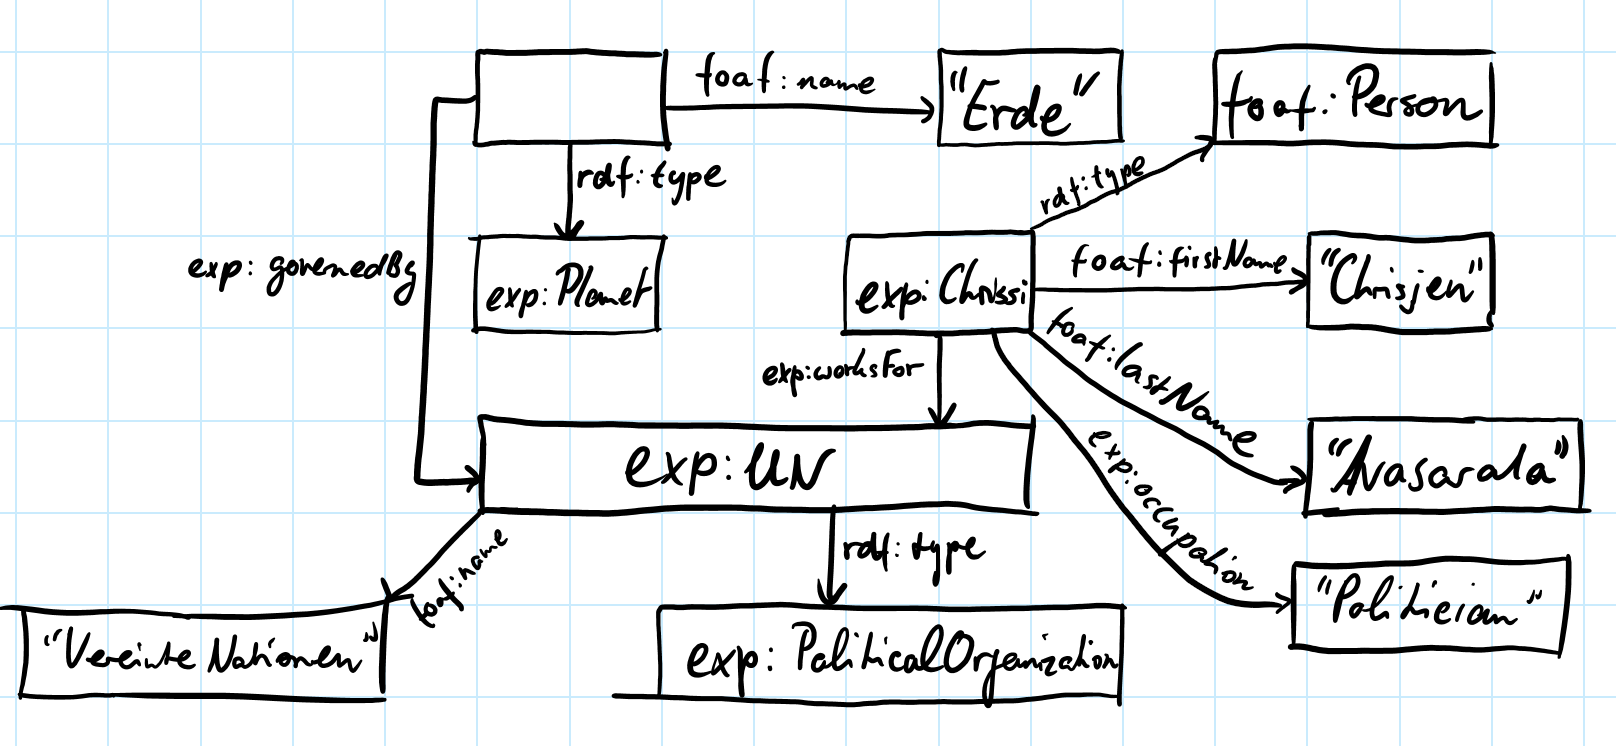 foaf:name
"Erde"
foaf:Person
rdf:type
rdf:type
exp:governedBy
exp:Planet
exp:Chrissi
foaf:firstName
"Chrisjen"
exp:worksFor
foaf:lastName
exp:UN
exp:occupation
"Avasarala"
foaf:name
rdf:type
"Politician"
"Vereinte Nationen"
exp:PoliticalOrganization